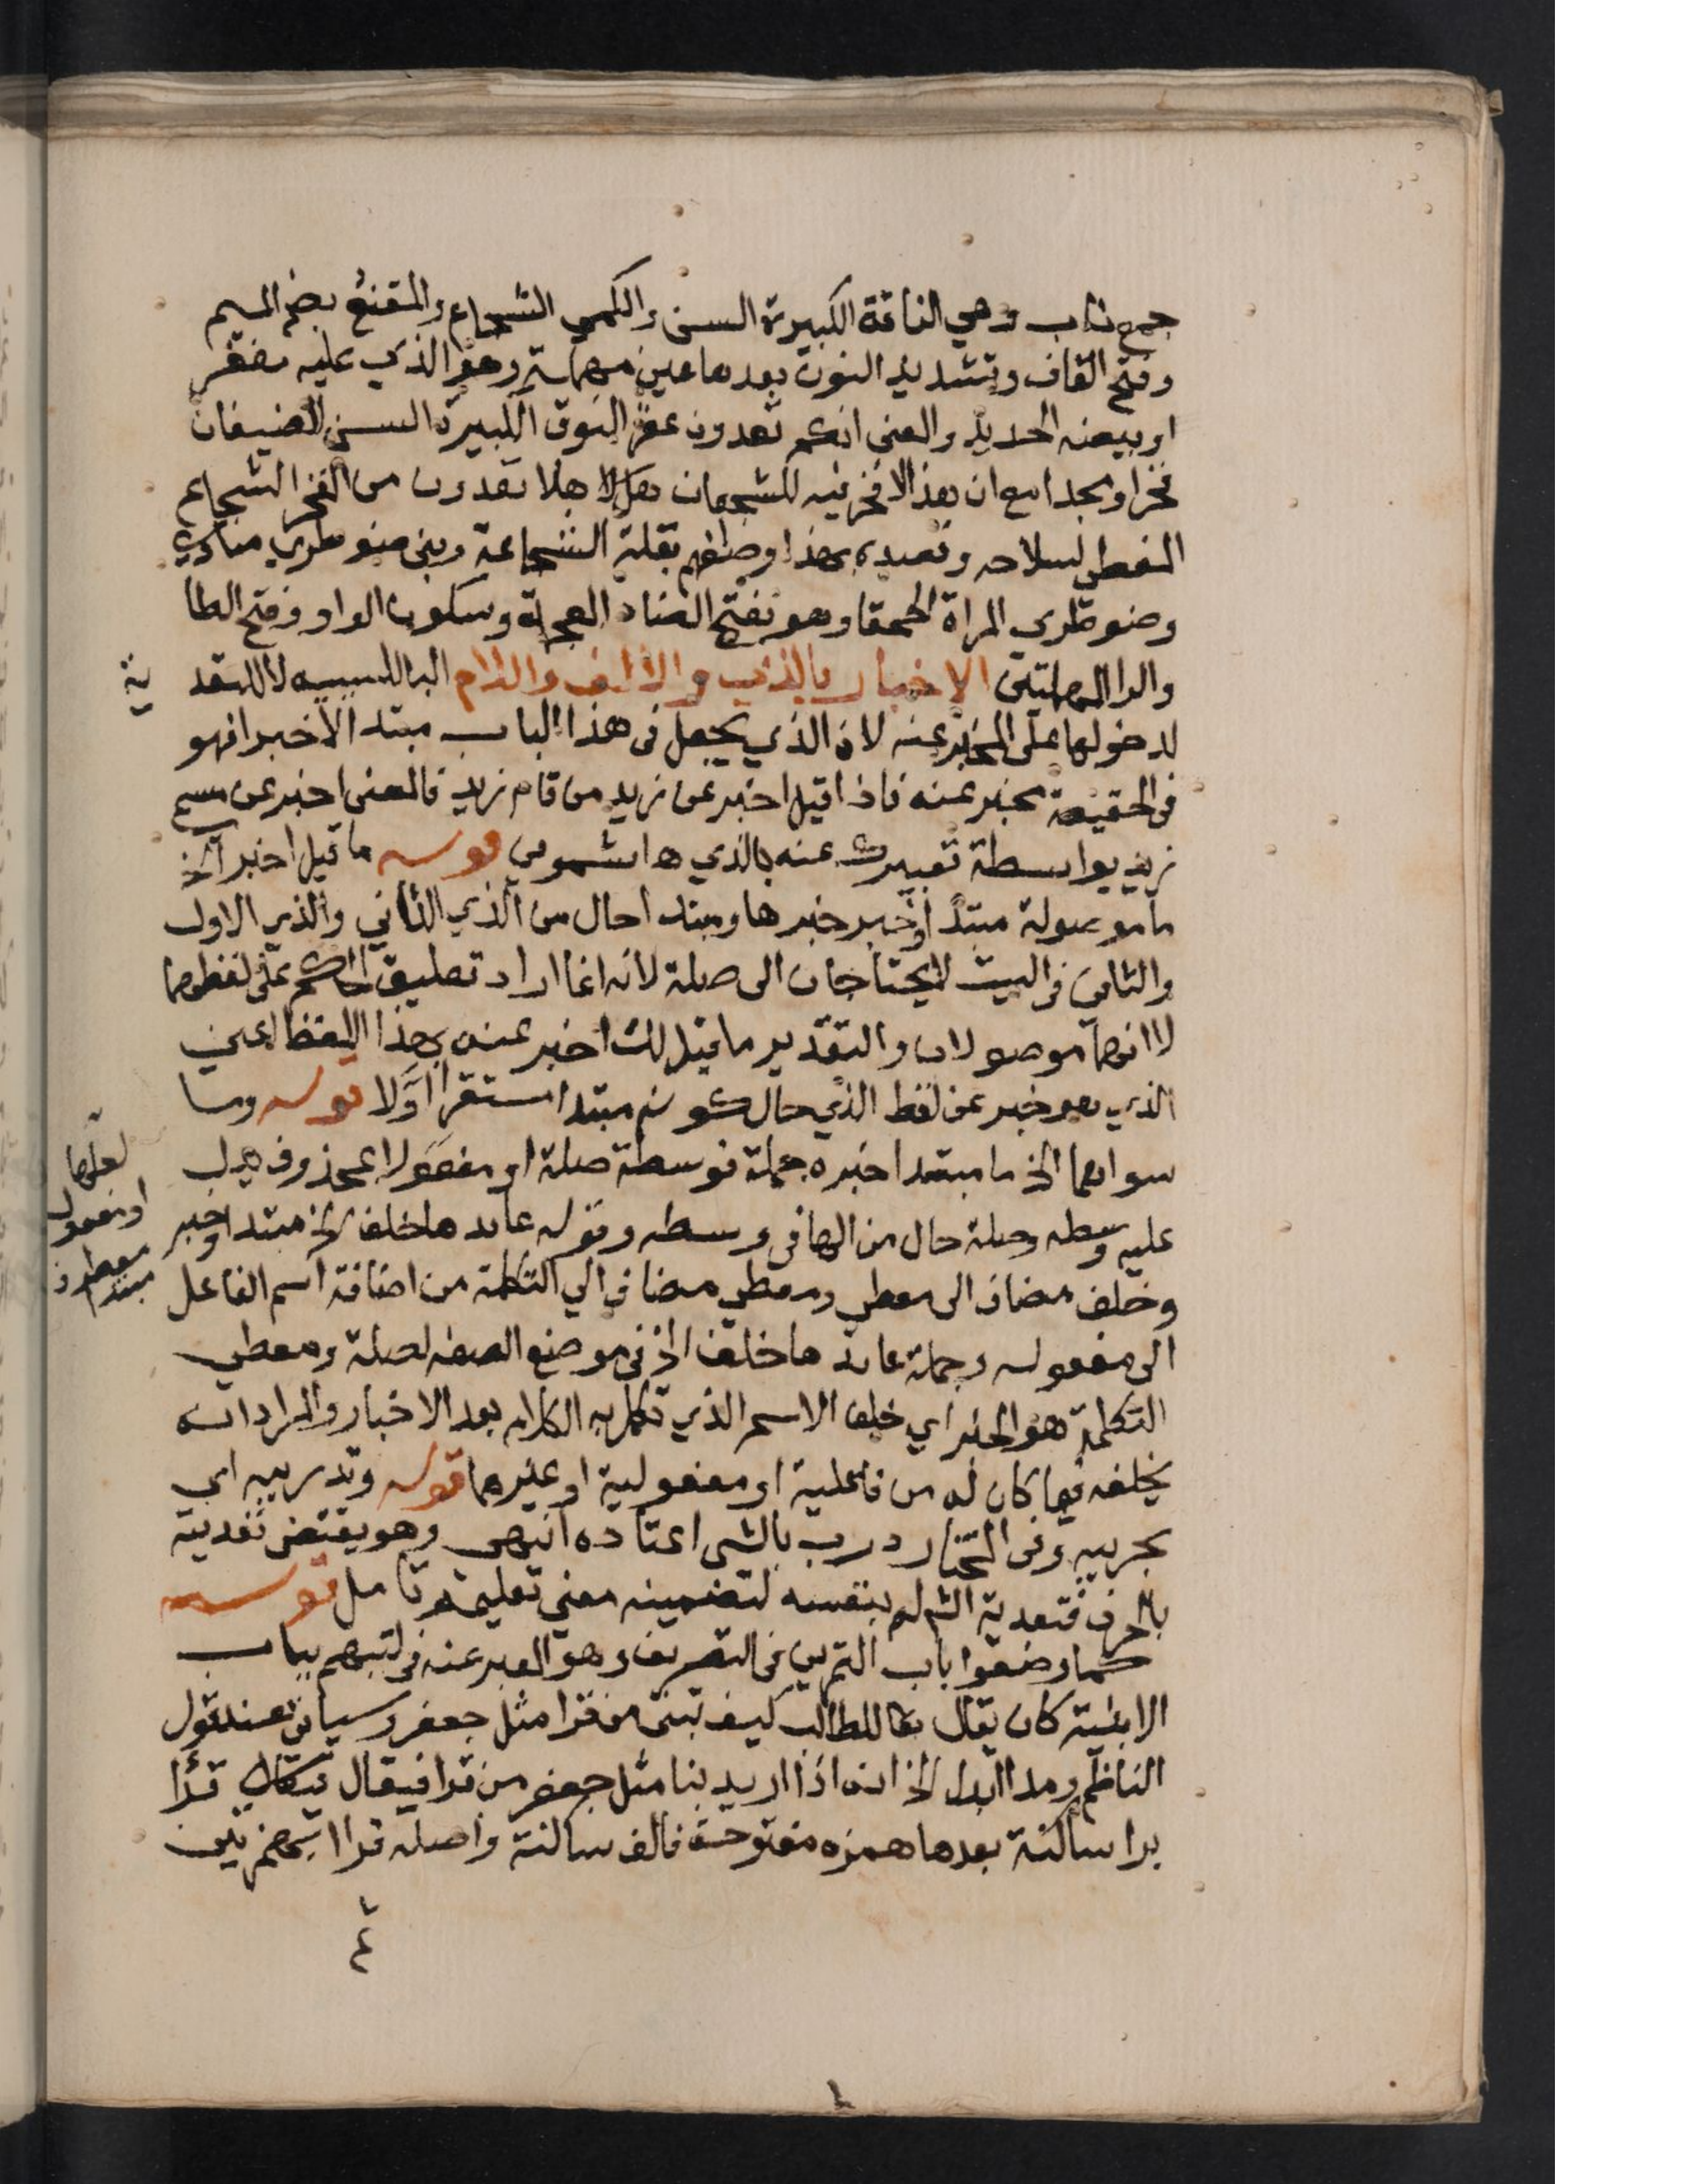 جمع ناب وهي الناقة الكبيرة السن والكمي الشجاع والمقنع بضم الميم
وفتح القاف وتشديد النون بعدها عين مهملة وهو الذي عليه مغفر
او بيضة الحديد والمعنى انكم تعدون عقر النوق الكبيرة السن للضيفان
فخرا ومجدا مع ان هذا لا فخر فيه للشجعان هلا تعدون من الفخر الشجاع
المغطى لسلاحه بهذا وصفهم بقلة الشجاعة وبني ضوطرى منادى
وضوطرى المراة الحمقا وهو بفتح الضاد المعجمة وسكون الواو وفتح الطا
والرا المهملتين الاخبار بالذي والالف واللام البا للسببيه لا للتعد ية
لدخولها على المخبر عنه لان الذي يجعل في هذا الباب مبتدا لا خبرا فهو
في الحقيقة مخبر عنه فاذا قيل اخبر عن زيد من قام زيد فالمعنى اخبر عن مسمى
زيد بواسطة تعبيرك عنه بالذي ها شموني قوله ما قيل اخبر الخ
ما موصولة مبتدا وخبر خبرها ومبتدا حال من الذي الثاني والذي الاول
والثاني في البيت لا يحتاجان الى صلة لانه انما اراد تعليق الحكم على لفظهما
لا انهما موصولان والتقدير ما قيل لك اخبر عنه بهذا اللفظ اعني
الذي هو خبر عن لفظ الذي حال كونه مبتدا استقر اولا قوله وما
سواهما الخ ما مبتدا خبره جملة فوسطه صلة او مفعولا لمحذوف يدل
عليه وسطه وصلة حال من الها في وسطه وقوله عايدها خلف الخ مبتدا وخبر
وخلف مضاف الى معطي ومعطي مضاف الي التكلمة من اضافة اسم الفاعل
الى مفعوله وجملة عايدها خلف الخ في موضع الصفه لصلة ومعطي
التكلمة هو الخبر اي خلف الاسم الذي تكمل به الكلام بعد الاخبار والمراد انه
يخلفه فيما كان له من فاعلية او مفعولية او غيرهما قوله وتدريبه اي
تجريبه وفي المختار درب بالشي اعتاده انتهى وهو يقتضي تعديته
بالحرف فتعدية الش له بنفسه لتضمينه معنى تعليمه تامل قوله
كما وضعوا باب التمرين في التصريف وهو المعبر عنه في كتبهم بباب
الابنية كان يقال للطالب كيف تبنى من قرا مثل جعفر وسياتي عند قول
الناظم ومدا ابدل الخ انه اذا اريد بنا مثل جعفر من قرا فيقال قرأا
برا ساكنة بعدها همزه مفتوحة فالف ساكنة واصله قراا بهمزتين
لعلها
او مفعول